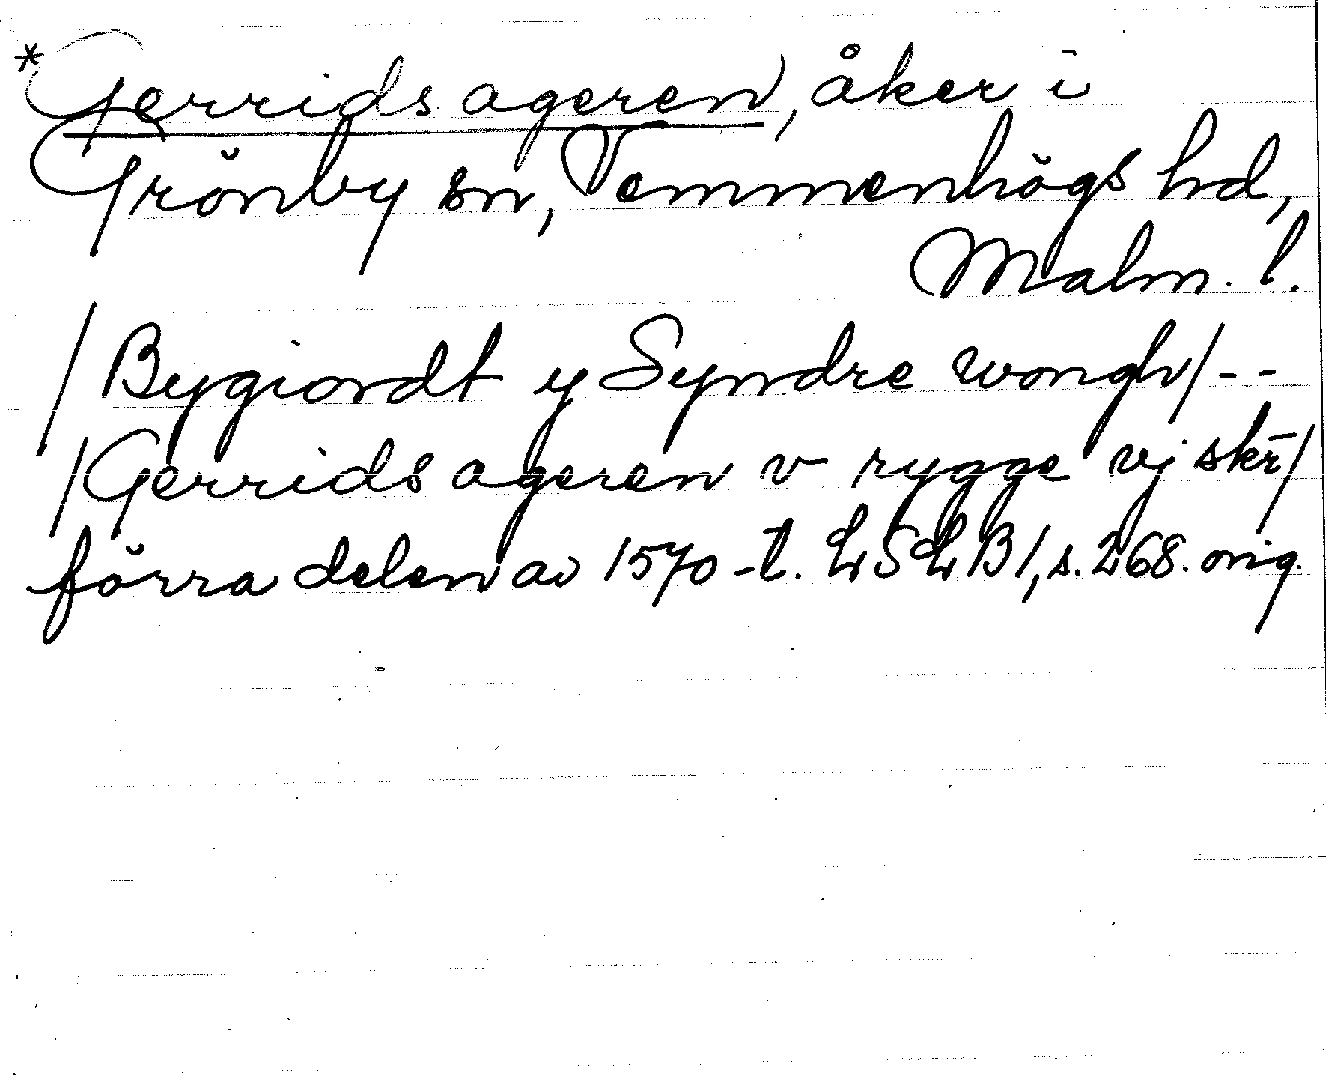 *Gerrids ageren, åker i
Grönby sn, Vemmenhögs hd,
Malm. l.
/Bygiordt y Syndre wongh/--
/Gerrids ageren v rygge vj skr̄/
förra delen av 1570-t. LSLB1, s. 268. orig.